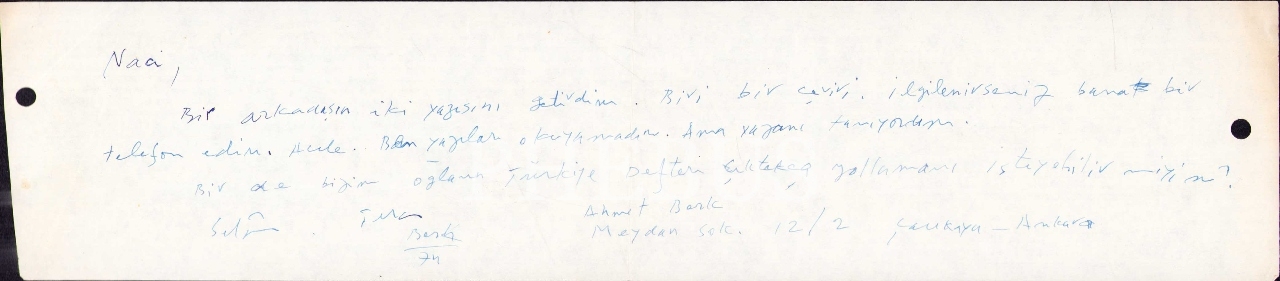 Naci,
Bir arkadaşın iki yazısını getirdim. Biri bir çeviri. ilgilenirseniz bana bir
telefon edin. Acele. Ben yazıları okuyamadım. Ama yazanı tanıyordum.
Bir de bizim oğlana Türkiye Defteri çıktıkça yollamanı isteyebilir miyim?
Selâm. İlhan
Berk
74
Ahmet Berk
Meydan Sok. 12/2 Çankaya - Ankara